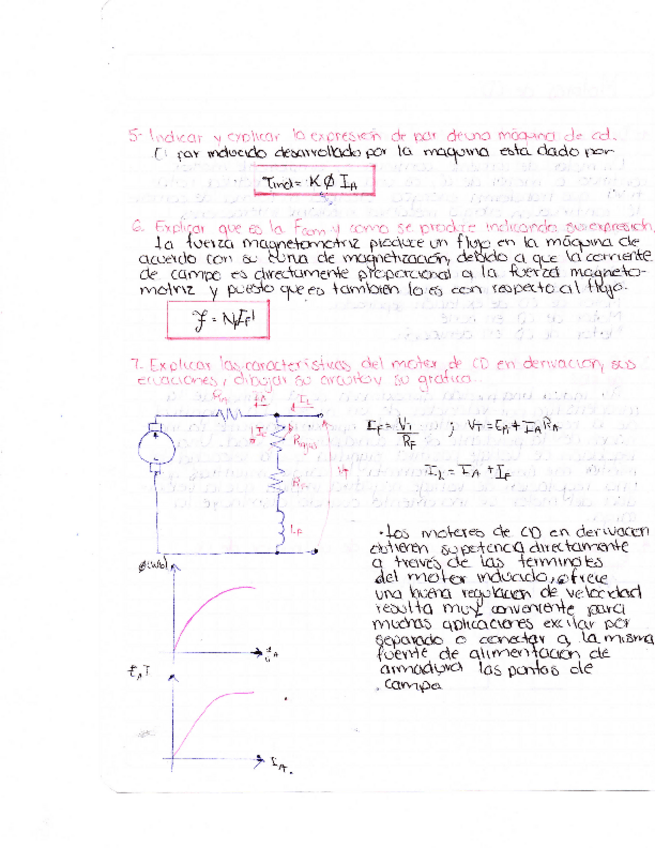 5- Indicar y explicar la expresión de par de una máquina de cd.
El par inducido desarrollado por la maquina está dado por
Tind = KØ IA
6. Explicar que es la Fmm y como se produce indicando su expresión.
La fuerza magnetomotriz produce un flujo en la máquina de
acuerdo con su curva de magnetización, debido a que la corriente
de campo es directamente proporcional a la fuerza magneto-
motriz y puesto que es también lo es con respecto al flujo.
7. Explicar las características del motor de CD en derivación, sus
ecuaciones, dibujar su circuito y su gráfica.
IL
IF = VT / RF ; VT = EA + IA RA
IL = IA + IF
RF
VT
LF
· Los motores de CD en derivacion
obtienen su potencia directamente
a través de las terminales
del motor inducido, ofrece
una buena regulación de velocidad
resulta muy conveniente para
muchas aplicaciones excitar por
separado o conectar a la misma
fuente de alimentación de
armadura las puntas de
campo
IA.